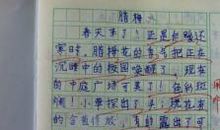 腊梅
春天来了！还是乍暖还
寒时，腊梅花的香气把正在
沉睡中的校园唤醒了。现在
的中庭广场可美了！色彩斑
斓！小草探出了头；现在来
的含苞待放，有的露出了可